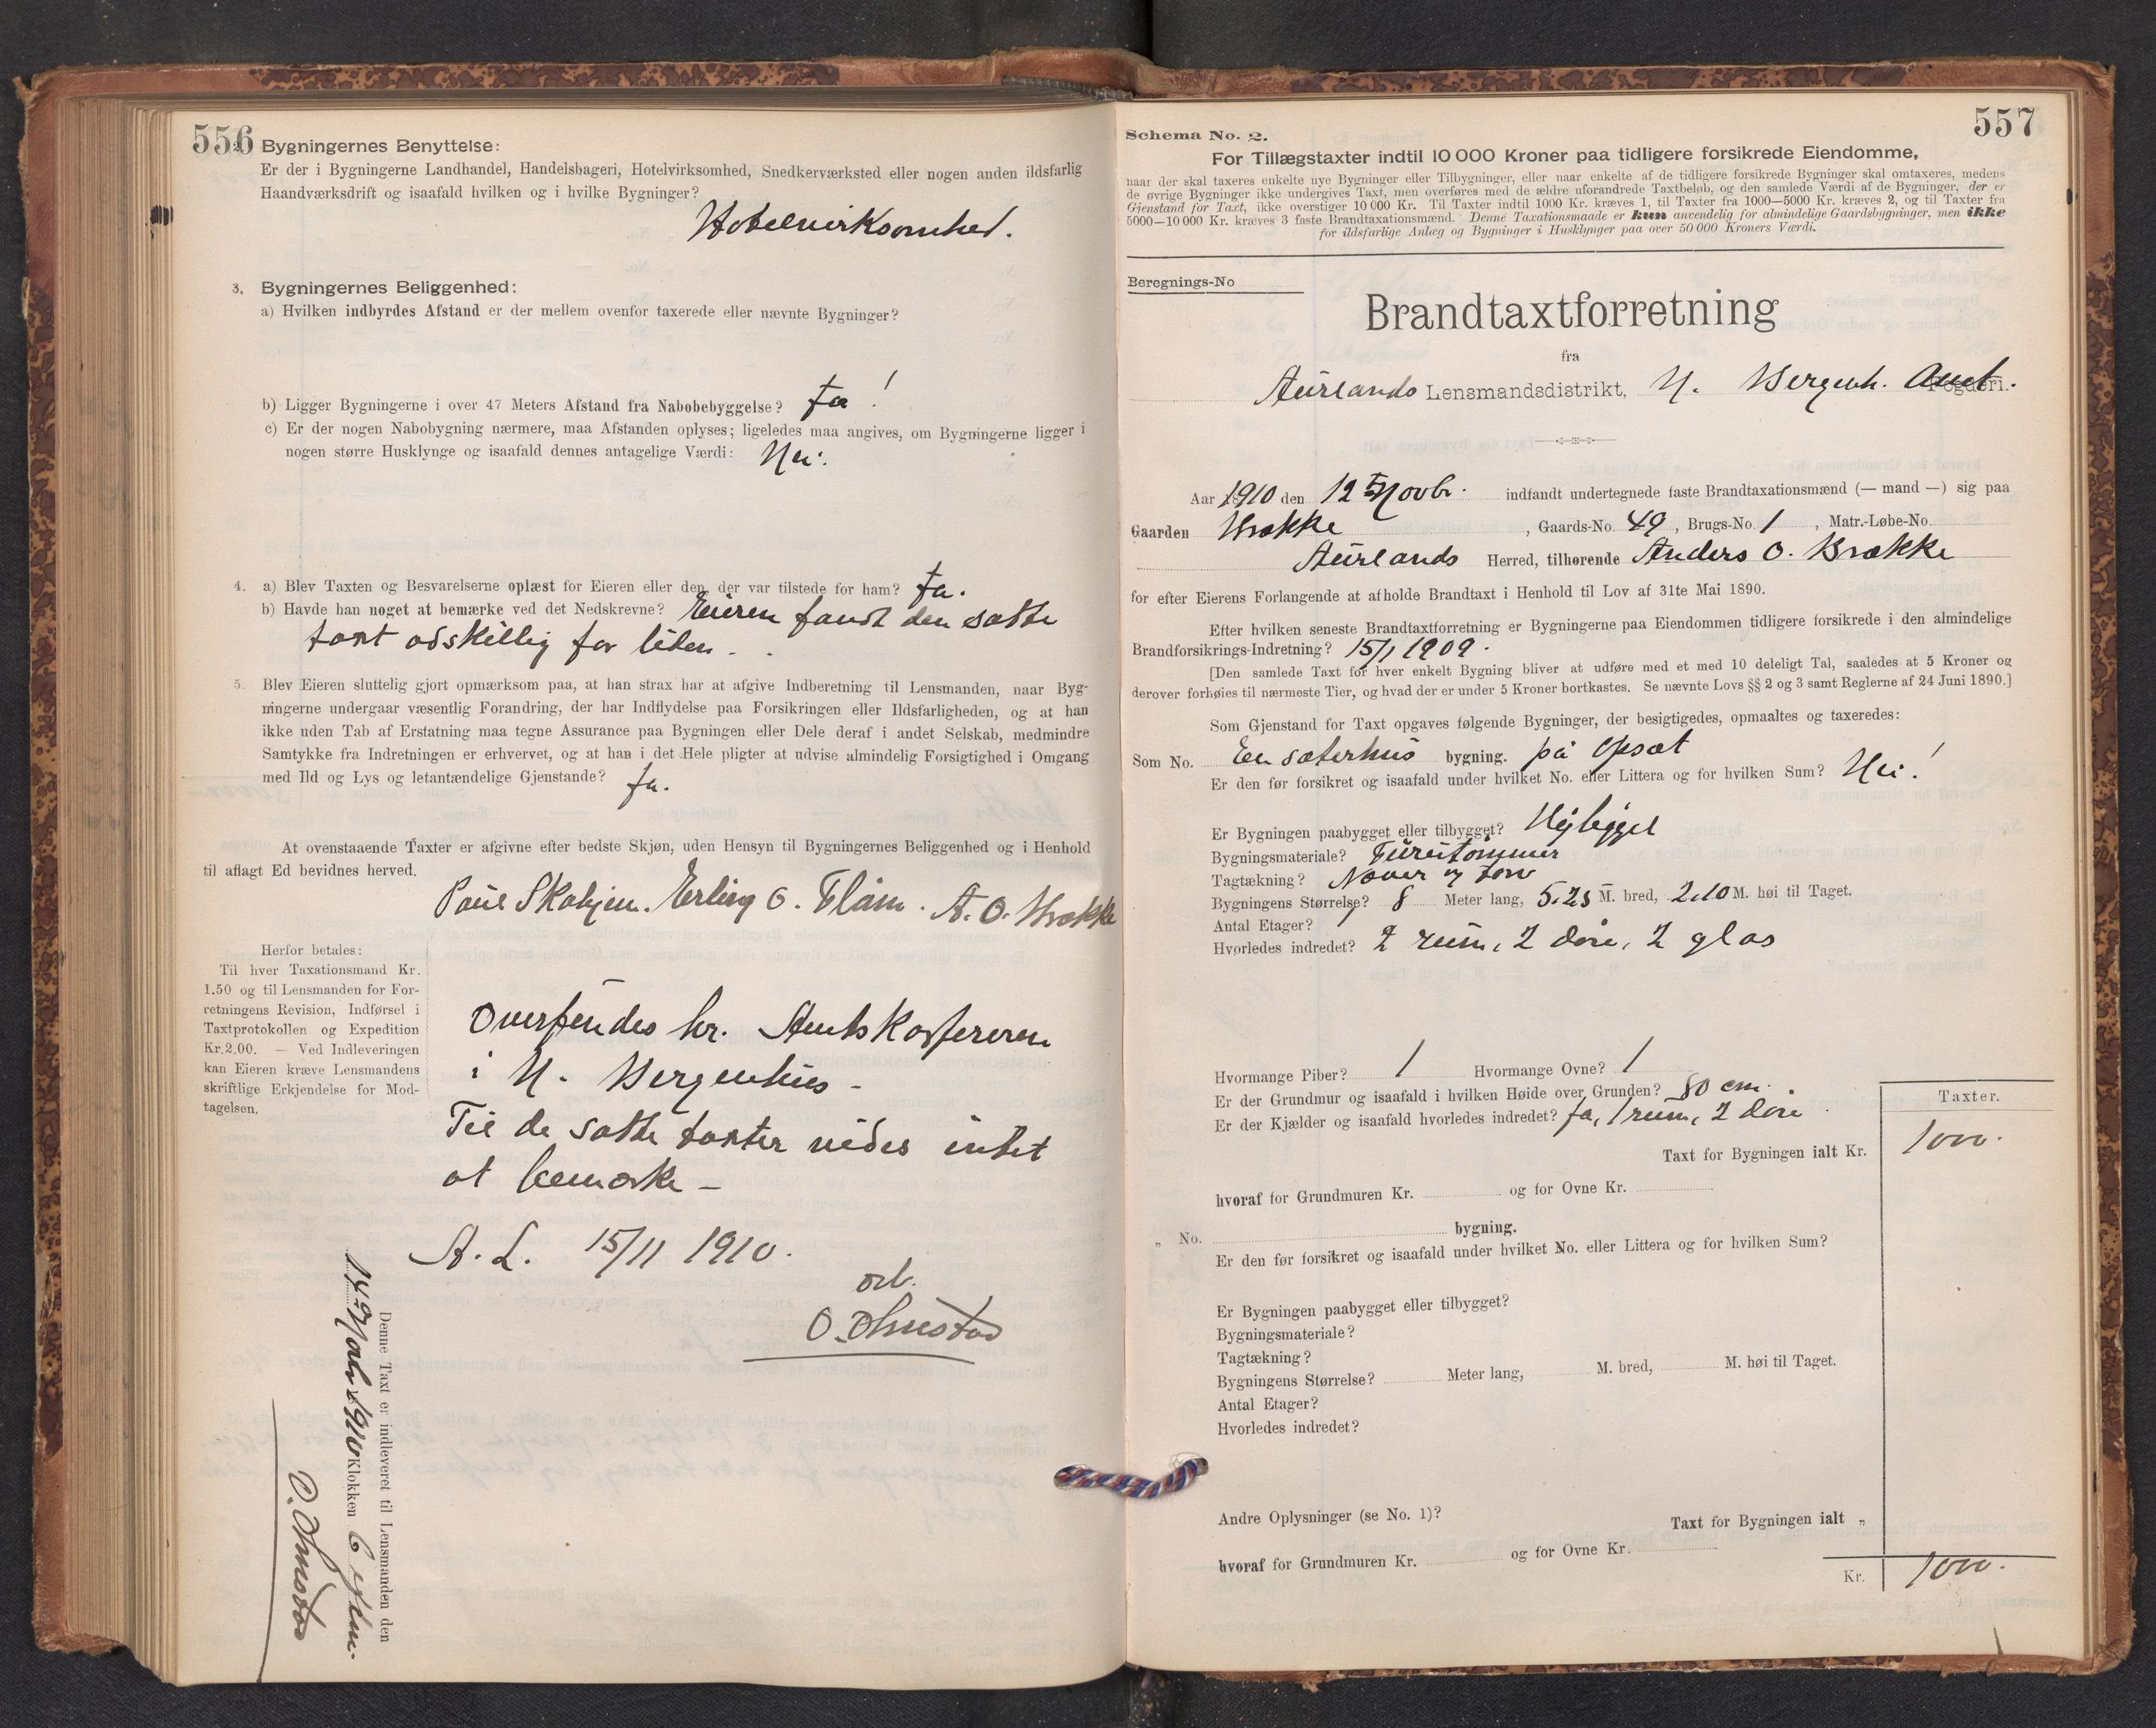 556
Bygningernes Benyttelse:
Er der i Bygningerne Landhandel, Handelsbageri, Hotelvirksomhed, Snedkerværksted eller nogen anden ildsfarlig
Haandværksdrift og isaafald hvilken og i hvilke Bygninger?
Hotelvirksomhed.
3. Bygningernes Beliggenhed:
a) Hvilken indbyrdes Afstand er der mellem ovenfor taxerede eller nævnte Bygninger?
b) Ligger Bygningerne i over 47 Meters Afstand fra Nabobebyggelse? Ja!
c) Er der nogen Nabobygning nærmere, maa Afstanden oplyses; ligeledes maa angives, om Bygningerne ligger i
nogen større Husklynge og isaafald dennes antagelige Værdi: Nei.
4. a) Blev Taxten og Besvarelserne oplæst for Eieren eller den, der var tilstede for ham? Ja.
b) Havde han noget at bemærke ved det Nedskrevne? Eieren fandt den satte
taxt adskillig for liten.
5. Blev Eieren sluttelig gjort opmærksom paa, at han strax har at afgive Indberetning til Lensmanden, naar Byg-
ningerne undergaar væsentlig Forandring, der har Indflydelse paa Forsikringen eller Ildsfarligheden, og at han
ikke uden Tab af Erstatning maa tegne Assurance paa Bygningen eller Dele deraf i andet Selskab, medmindre
Samtykke fra Indretningen er erhvervet, og at han i det Hele pligter at udvise almindelig Forsigtighed i Omgang
med Ild og Lys og letantændelige Gjenstande? Ja.
At ovenstaaende Taxter er afgivne efter bedste Skjøn, uden Hensyn til Bygningernes Beliggenhed og i Henhold
til aflagt Ed bevidnes herved.
Erling O. Flåm. A. O. Brække
Herfor betales:
Til hver Taxationsmand Kr.
1.50 og til Lensmanden for For-
retningens Revision, Indførsel i
Taxtprotokollen og Expedition
Kr. 2.00. — Ved Indleveringen
kan Eieren kræve Lensmandens
skriftlige Erkjendelse for Mod-
tagelsen.
Oversendes hr. Amtskassereren
i N. Bergenhus -
Til de satte taxter vides intet
at bemærke -
A. L. 15/11 1910.
O. Ohnstad
Denne Taxt er indleveret til Lensmanden den
14 Novbr 1910 Klokken 6 eftm.
O. Ohnstad
557
Schema No. 2.
For Tillægstaxter indtil 10 000 Kroner paa tidligere forsikrede Eiendomme,
naar der skal taxeres enkelte nye Bygninger eller Tilbygninger, eller naar enkelte af de tidligere forsikrede Bygninger skal omtaxeres, medens
de øvrige Bygninger ikke undergives Taxt, men overføres med de ældre uforandrede Taxtbeløb, og den samlede Værdi af de Bygninger, der er
Gjenstand for Taxt, ikke overstiger 10 000 Kr. Til Taxter indtil 1000 Kr. kræves 1, til Taxter fra 1000—5000 Kr. kræves 2, og til Taxter fra
5000—10 000 Kr. kræves 3 faste Brandtaxationsmænd. Denne Taxationsmaade er kun anvendelig for almindelige Gaardsbygninger, men ikke
for ildsfarlige Anlæg og Bygninger i Husklynger paa over 50 000 Kroners Værdi.
Beregnings-No
Brandtaxtforretning
fra
Aurlands Lensmandsdistrikt, N. Bergenh. Amt. Fogderi.
Aar 1910 den 12 Novbr. indfandt undertegnede faste Brandtaxationsmænd (— mand —) sig paa
Gaarden Brække, Gaards-No. 49, Brugs-No. 1, Matr.-Løbe-No.
Aurlands Herred, tilhørende Anders O. Brække
for efter Eierens Forlangende at afholde Brandtaxt i Henhold til Lov af 31te Mai 1890.
Efter hvilken seneste Brandtaxtforretning er Bygningerne paa Eiendommen tidligere forsikrede i den almindelige
Brandforsikrings-Indretning? 15/1 1909.
[Den samlede Taxt for hver enkelt Bygning bliver at udføre med et med 10 deleligt Tal, saaledes at 5 Kroner og
derover forhøies til nærmeste Tier, og hvad der er under 5 Kroner bortkastes. Se nævnte Lovs §§ 2 og 3 samt Reglerne af 24 Juni 1890.]
Som Gjenstand for Taxt opgaves følgende Bygninger, der besigtigedes, opmaaltes og taxeredes:
Som No. En sæterhus bygning. på Opsæt
Er den før forsikret og isaafald under hvilket No. eller Littera og for hvilken Sum? Nei!
Er Bygningen paabygget eller tilbygget? Nybygget
Bygningsmateriale? Furutømmer
Tagtækning? Næver og torv
Bygningens Størrelse? 8 Meter lang, 5.25 M. bred, 2.10 M. høi til Taget.
Antal Etager? 1
Hvorledes indredet? 2 rum, 2 døre, 2 glas
Hvormange Piber? 1 Hvormange Ovne? 1
Er der Grundmur og isaafald i hvilken Høide over Grunden? 80 cm.
Er der Kjælder og isaafald hvorledes indredet? Ja, 1 rum, 2 døre
Taxter.
Taxt for Bygningen ialt Kr. 1000.
hvoraf for Grundmuren Kr. og for Ovne Kr.
„ No. bygning.
Er den før forsikret og isaafald under hvilket No. eller Littera og for hvilken Sum?
Er Bygningen paabygget eller tilbygget?
Bygningsmateriale?
Tagtækning?
Bygningens Størrelse? Meter lang, M. bred, M. høi til Taget.
Antal Etager?
Hvorledes indredet?
Andre Oplysninger (se No. 1)?
Taxt for Bygningen ialt „
hvoraf for Grundmuren Kr. og for Ovne Kr.
Kr. 1000.